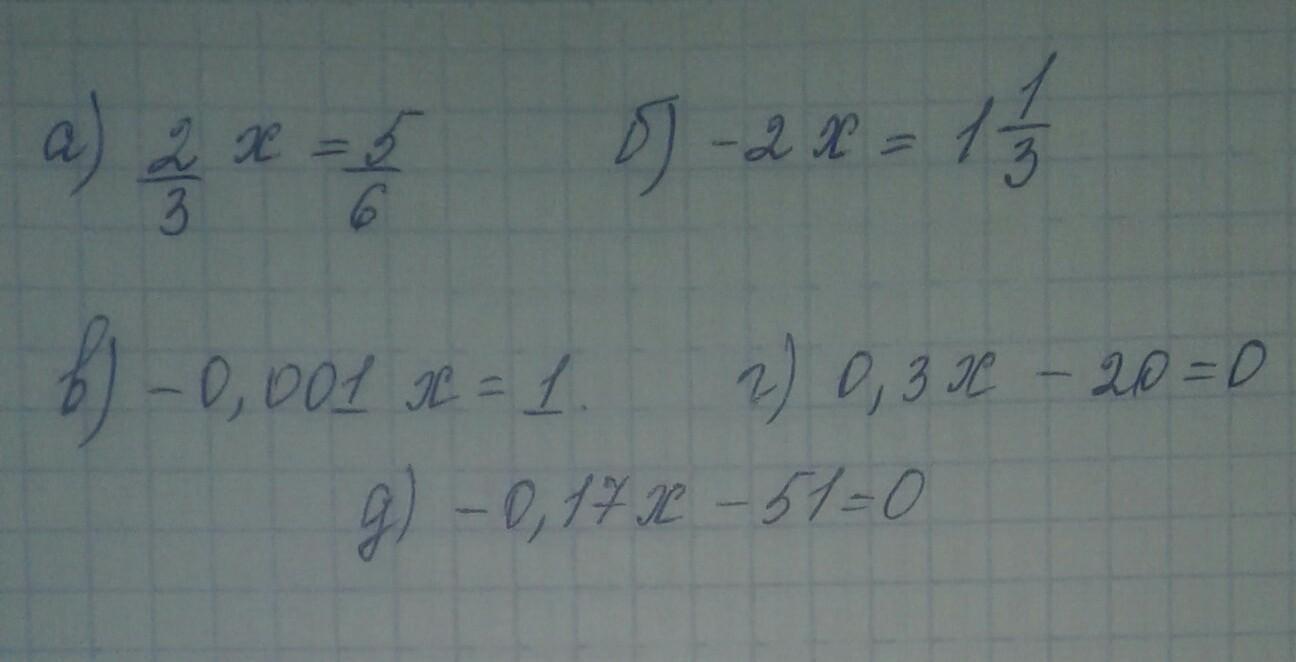 а) 2/3 x = 5/6 б) -2x = 1 1/3
в) -0,001 x = 1. г) 0,3x - 20 = 0
д) -0,17x - 51 = 0